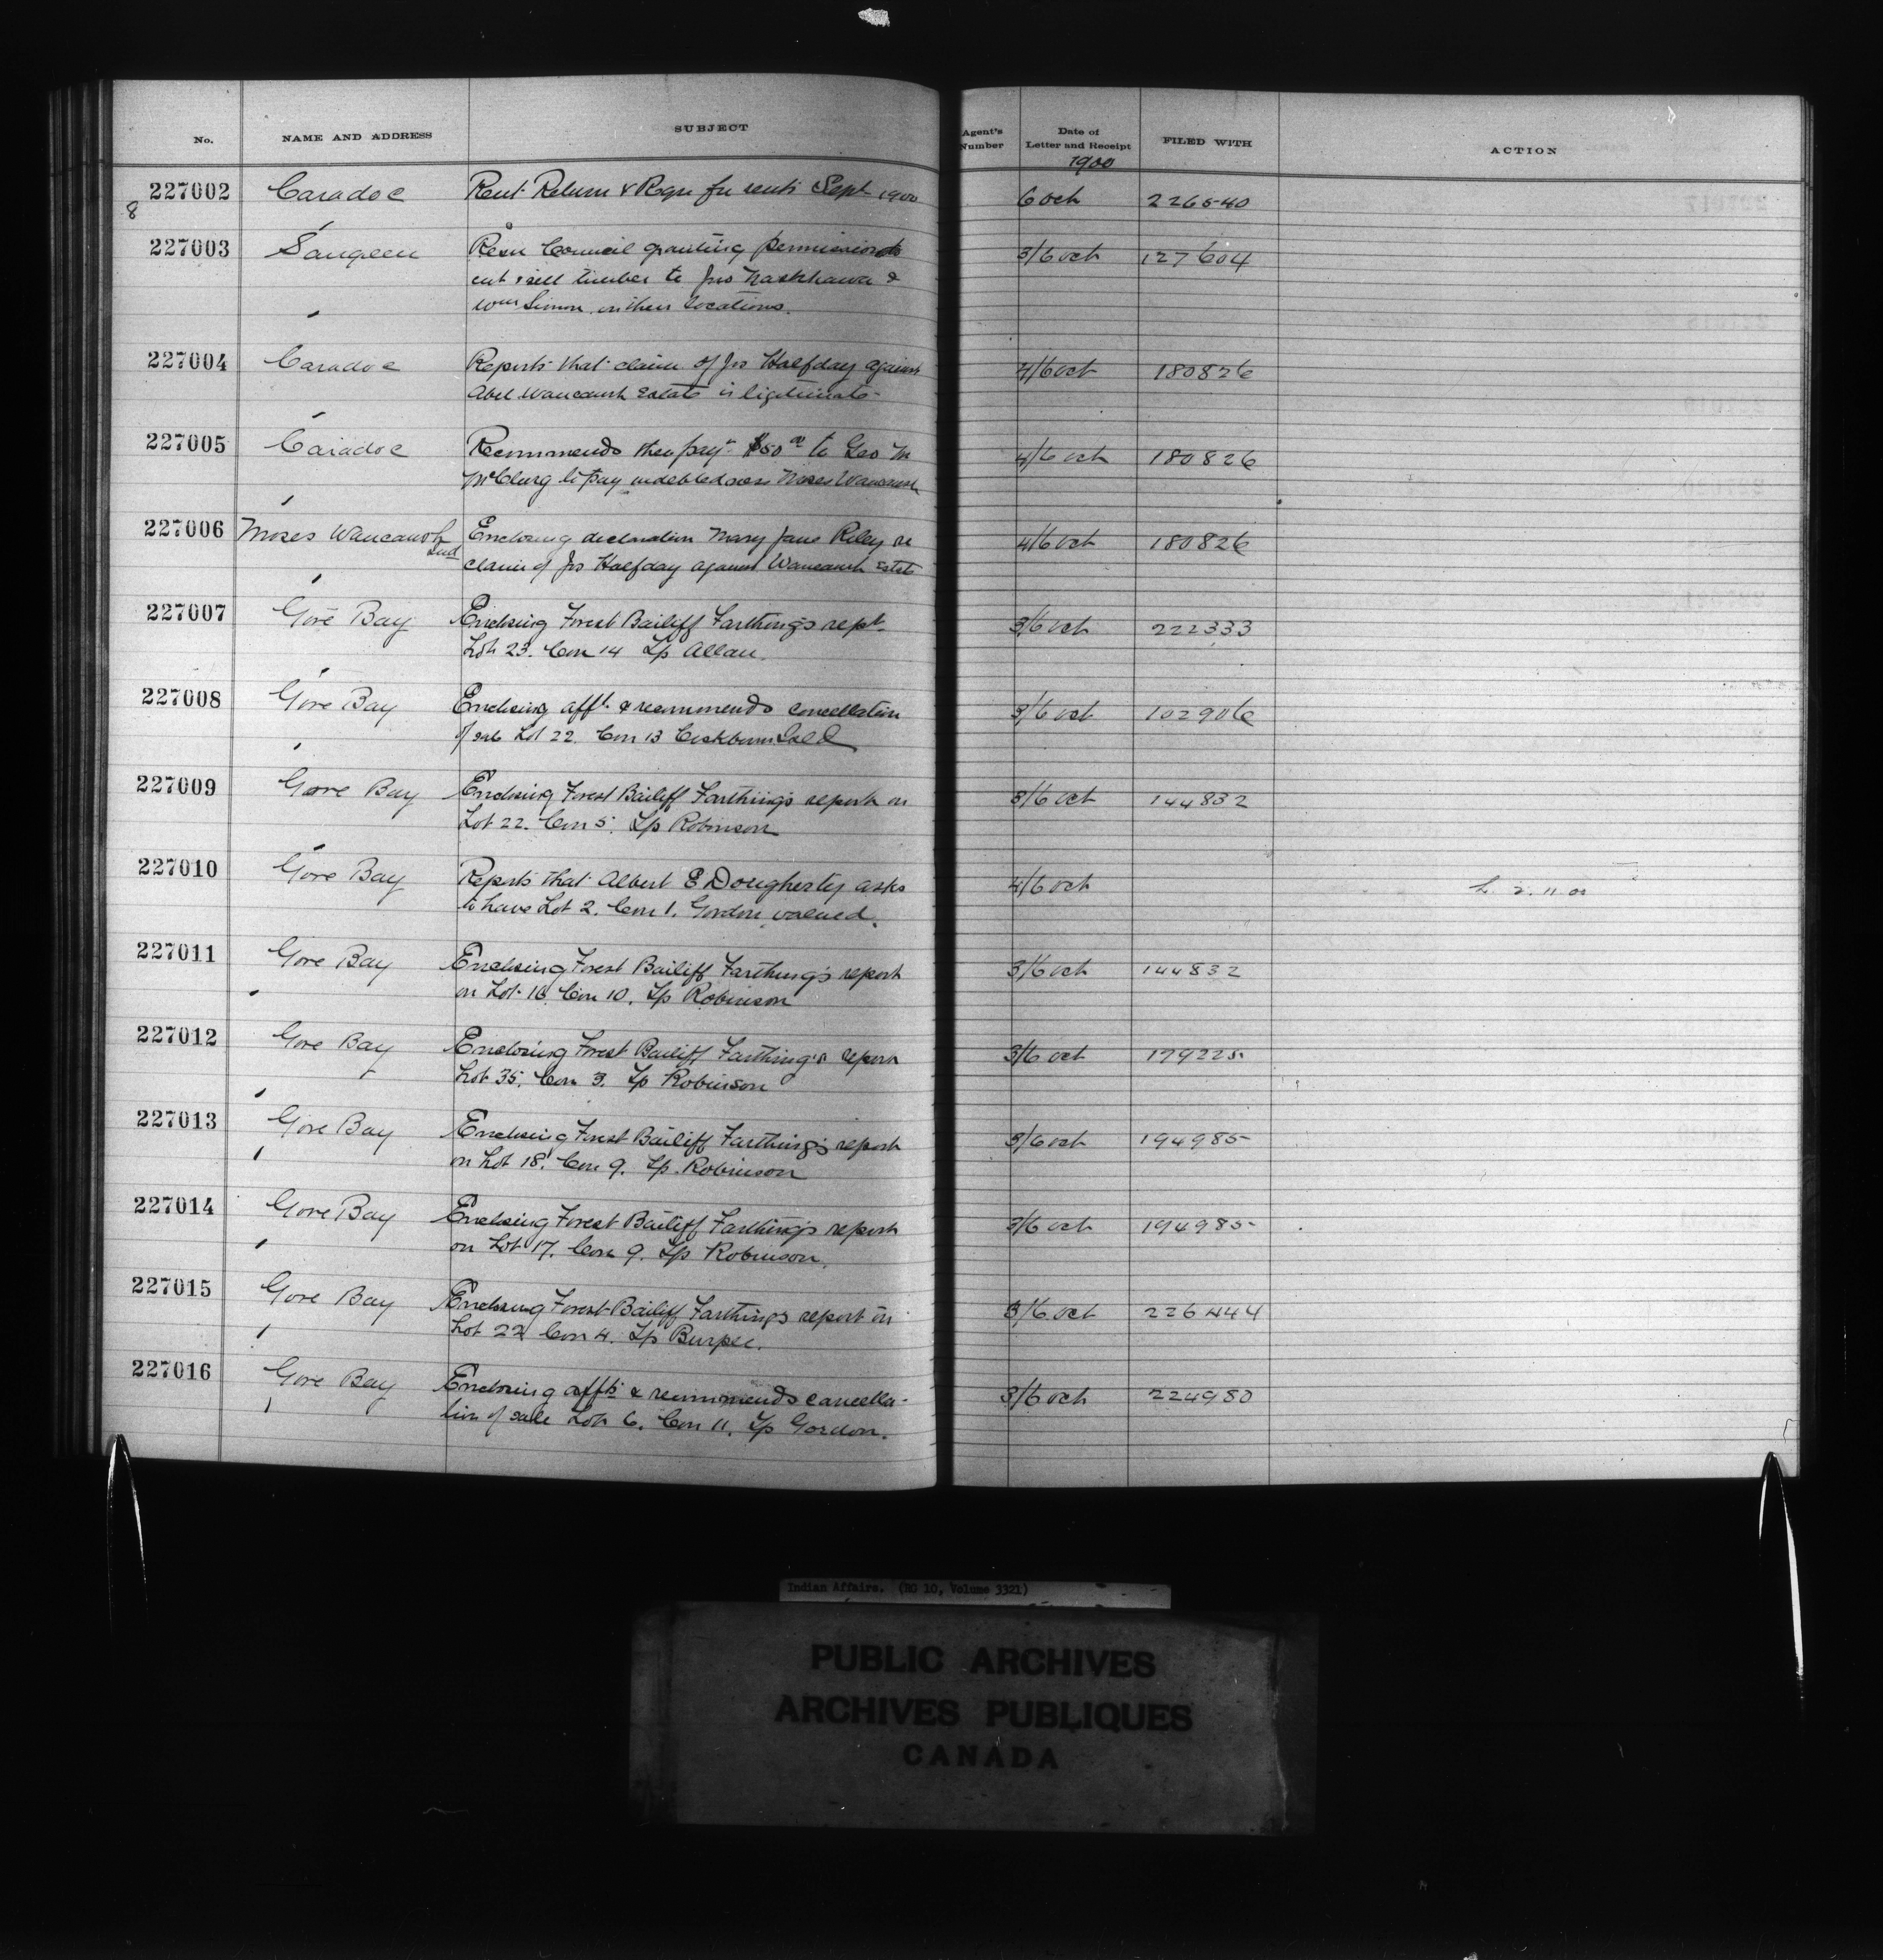 No. NAME AND ADDRESS SUBJECT Agent's Number Date of Letter and Receipt FILED WITH ACTION
1900
227002 Caradoc Rent Return & Reqn for rents Sept 1900 6 Oct 226540
8
227003 Saugeen Resn Council granting permission to 3/6 Oct 127604
cut & sell timber to Jno &
Wm Simon on their locations.
227004 Caradoc Reports that claim of Jno Halfday against 4/6 Oct 180826
Abel Waucaush Estate is ligitimate.
227005 Caradoc Recommends then payt $50 to Geo M 4/6 Oct 180826
McClurg to pay indebtedness Moses Waucaush
227006 Moses Waucaush Enclosing declaration Mary Jane Riley re 4/6 Oct 180826
Ind claim of Jno Halfday against Waucaush Estate
227007 Gore Bay Enclosing Forest Bailiff Farthing's rept. 3/6 Oct 222333
Lot 23. Con 14 Tp Allan.
227008 Gore Bay Enclosing afft. & recommends cancellation 3/6 Oct 102906
of sale Lot 22. Con 13 Cockburn Isld
227009 Gore Bay Enclosing Forest Bailiff Farthing's report on 3/6 Oct 144832
Lot 22. Con 5. Tp Robinson
227010 Gore Bay Reports that Albert E Dougherty asks 4/6 Oct L. 2. 11. 00
to have Lot 2. Con 1. Gordon valued.
227011 Gore Bay Enclosing Forest Bailiff Farthing's report 3/6 Oct 144832
on Lot 16. Con 10. Tp Robinson
227012 Gore Bay Enclosing Forest Bailiff Farthing's report 3/6 Oct 179225
Lot 35. Con 3. Tp Robinson
227013 Gore Bay Enclosing Forest Bailiff Farthing's report 3/6 Oct 194985
on Lot 18. Con 9. Tp. Robinson
227014 Gore Bay Enclosing Forest Bailiff Farthing's report 3/6 Oct 194985
on Lot 17. Con 9. Tp Robinson.
227015 Gore Bay Enclosing Forest Bailiff Farthing's report on 3/6 Oct 226444
Lot 22 Con 4. Tp Burpee.
227016 Gore Bay Enclosing affts & recommends cancella- 3/6 Oct 224980
tion of sale Lot 6. Con 11. Tp Gordon.
Indian Affairs. (RG 10, Volume 3321)
PUBLIC ARCHIVES
ARCHIVES PUBLIQUES
CANADA